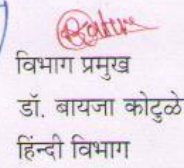 विभाग प्रमुख
डॉ. बायजा कोटुळे
हिंन्दी विभाग